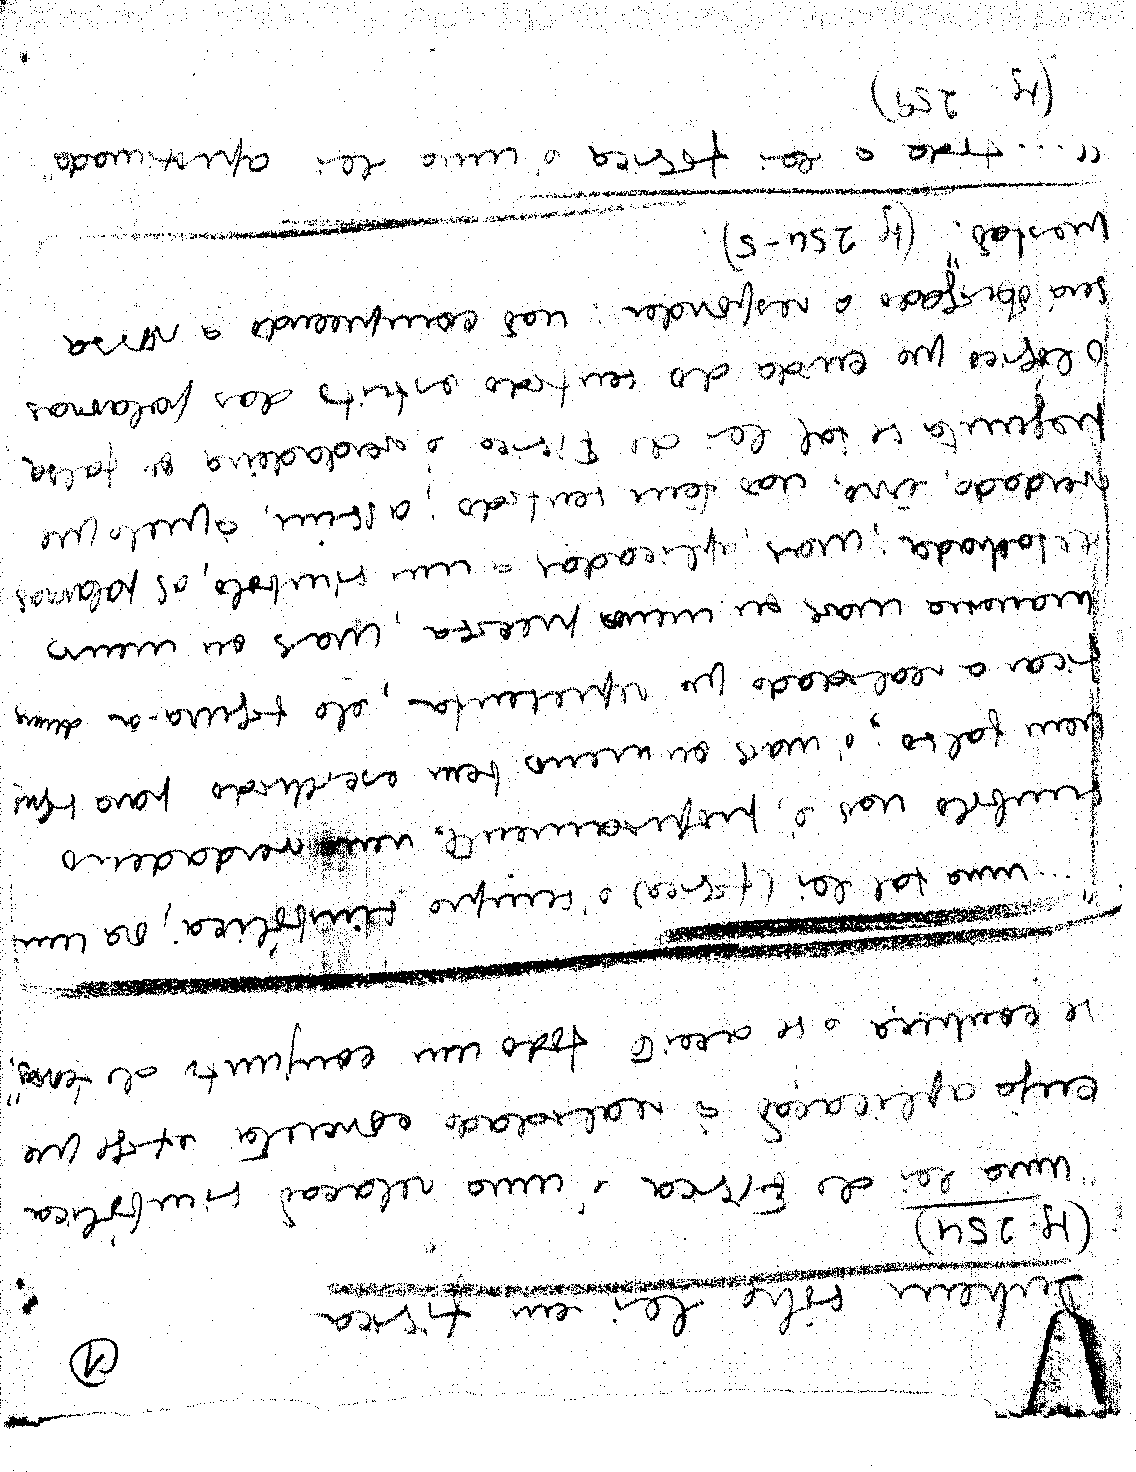 (1)
Duhem sobre lei em física
(pg. 254)
"uma lei de Física é uma relação simbólica
cuja aplicação à realidade concreta exige que
se conheça e se aceite todo um conjunto de teorias"
"... uma tal lei (física) é sempre simbólica; ora um
símbolo não é, propriamente, nem verdadeiro
nem falso; é mais ou menos bem escolhido para signi
ficar a realidade que representa, ele figura-a duma
maneira mais ou menos precisa, mais ou menos
detalhada; mas, aplicadas a um símbolo, as palavras
verdade, erro, não têm sentido; assim, àquele que
pergunta se tal lei de Física é verdadeira ou falsa
o lógico que cuida do sentido estrito das palavras
será obrigado a responder: não compreendo a vossa
questão". (pg 254-5).
"... toda a lei física é uma lei aproximada"
(pg 259)